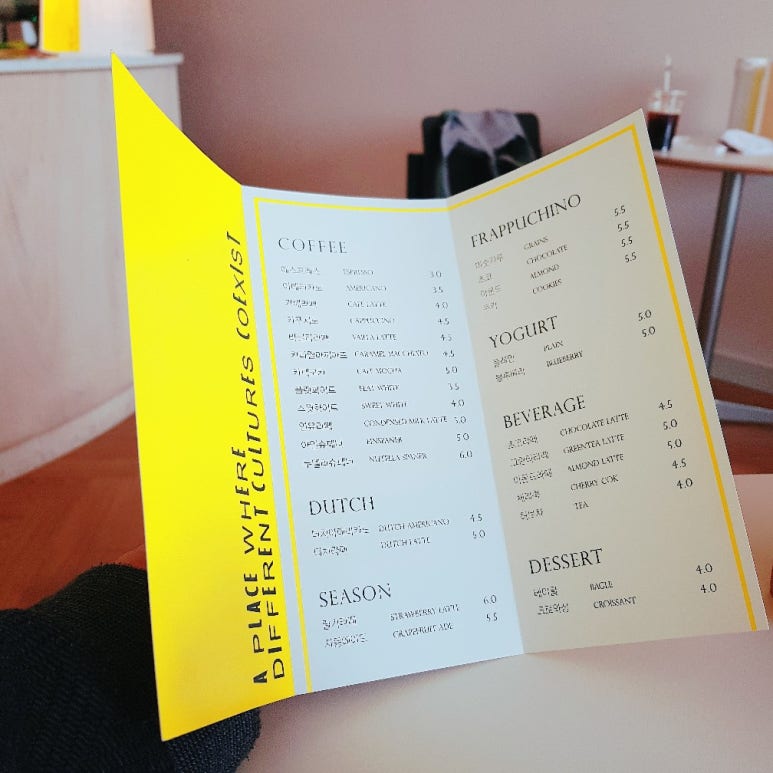 A PLACE WHERE
DIFFERENT CULTURES COEXIST
COFFEE
에스프레소 ESPRESSO 3.0
아메리카노 AMERICANO 3.5
카페라떼 CAFE LATTE 4.0
카푸치노 CAPPUCINO 4.5
바닐라라떼 VAILLA LATTE 4.5
카라멜마끼아또 CARAMEL MACCHIATO 4.5
카페모카 CAFE MOCHA 5.0
플랫화이트 FLAT WHITE 3.5
스윗화이트 SWEET WHITE 4.0
연유라떼 CONDENSED MILK LATTE 5.0
아인슈페너 EINSPANER 5.0
누텔라슈페너 NUTELLA SPANER 6.0
DUTCH
더치아메리카노 DUTCH AMERICANO 4.5
더치라떼 DUTCH LATTE 5.0
SEASON
딸기라떼 STRAWBERRY LATTE 6.0
자몽에이드 GRAPEFRUIT ADE 5.5
FRAPPUCHINO
미숫가루 GRAINS 5.5
초코 CHOCOLATE 5.5
아몬드 ALMOND 5.5
쿠키 COOKIES 5.5
YOGURT
플레인 PLAIN 5.0
블루베리 BLUEBERRY 5.0
BEVERAGE
초코라떼 CHOCOLATE LATTE 4.5
그린티라떼 GREENTEA LATTE 5.0
아몬드라떼 ALMOND LATTE 5.0
체리콕 CHERRY COK 4.5
허브차 TEA 4.0
DESSERT
베이글 BAGLE 4.0
크로와상 CROISSANT 4.0